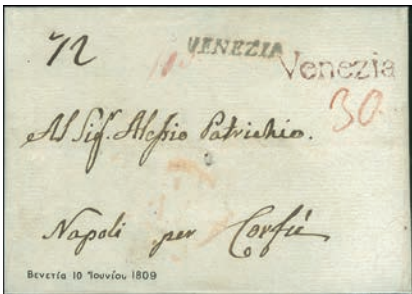 72 VENEZIA
Venezia
30.
Al Sig.r Alessio Patrichio.
Napoli per Corfù
Βενετία 10 Ἰουνίου 1809